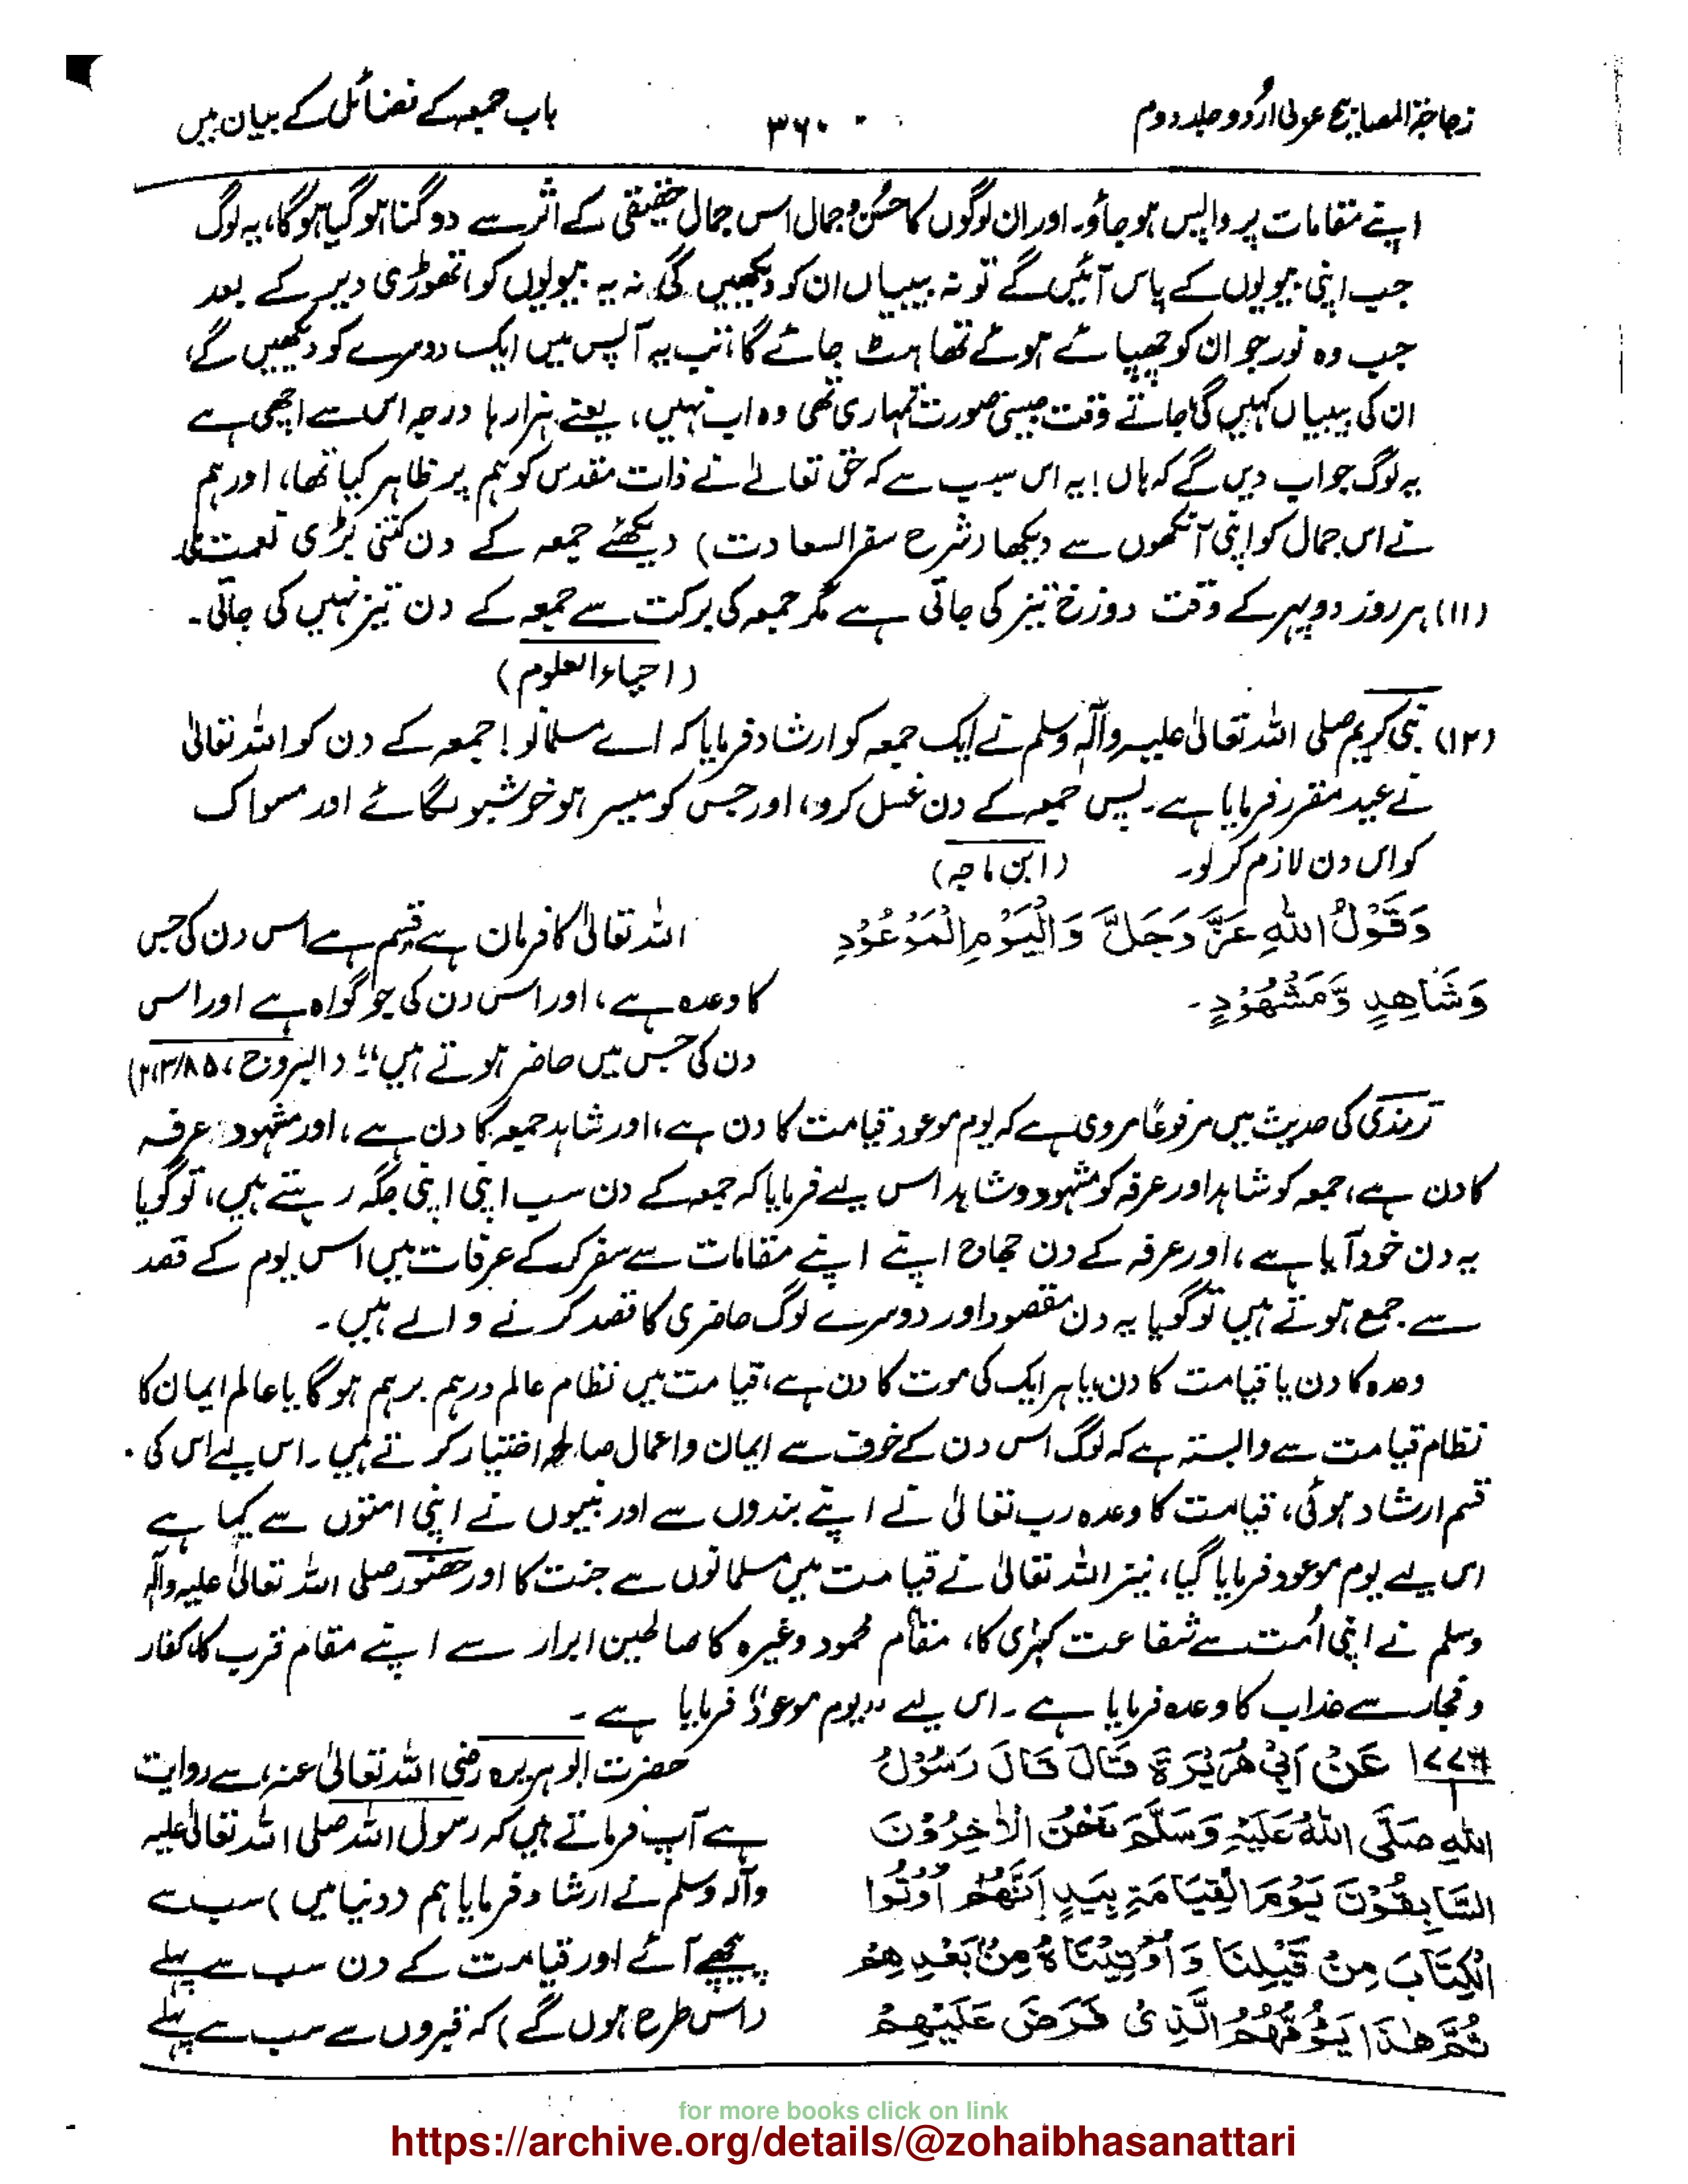 زجاجۃ المصابیح عربی اردو جلد دوم
۳۶۰
باب جمعہ کے فضائل کے بیان میں
اپنے مقامات پر واپس ہو جاؤ۔ اور ان لوگوں کا حُسن و جمال اس جمال حقیقی کے اثر سے دوگنا ہو گیا ہوگا، یہ لوگ
جب اپنی بیویوں کے پاس آئیں گے تو نہ بیبیاں ان کو دیکھیں گی نہ یہ بیویوں کو، تھوڑی دیر کے بعد
جب وہ نور جو ان کو چھپائے ہوئے تھا ہٹ جائے گا، تب یہ آپس میں ایک دوسرے کو دیکھیں گے،
ان کی بیبیاں کہیں گی جاتے وقت جیسی صورت تمہاری تھی وہ اب نہیں، یعنے ہزارہا درجہ اس سے اچھی ہے
یہ لوگ جواب دیں گے کہ ہاں! یہ اس سبب سے کہ حق تعالےٰ نے ذات مقدس کو ہم پر ظاہر کیا تھا، اور ہم
نے اس جمال کو اپنی آنکھوں سے دیکھا (شرح سفر السعادت) دیکھئے جمعہ کے دن کتنی بڑی نعمت ملی
(۱۱) ہر روز دوپہر کے وقت دوزخ تیز کی جاتی ہے مگر جمعہ کی برکت سے جمعہ کے دن تیز نہیں کی جاتی۔
(احیاء العلوم)
(۱۲) نبی کریم صلی اللہ تعالیٰ علیہ وآلہٖ وسلم نے ایک جمعہ کو ارشاد فرمایا کہ اے مسلمانو! جمعہ کے دن کو اللہ تعالیٰ
نے عید مقرر فرمایا ہے۔ پس جمعہ کے دن غسل کرو، اور جس کو میسر ہو خوشبو لگائے اور مسواک
کو اس دن لازم کر لو۔ (ابن ماجہ)
وَقَوْلُ اللهِ عَزَّ وَجَلَّ وَالْيَوْمِ الْمَوْعُوْدِ
وَشَاهِدٍ وَّمَشْهُوْدٍ۔
اللہ تعالیٰ کا فرمان ہے قسم ہے اس دن کی جس
کا وعدہ ہے، اور اس دن کی جو گواہ ہے اور اس
دن کی جس میں حاضر ہوتے ہیں" (البروج، ۸۵/۲،۳)
ترمذی کی حدیث میں مرفوعًا مروی ہے کہ یوم موعود قیامت کا دن ہے، اور شاہد جمعہ کا دن ہے، اور مشہود عرفہ
کا دن ہے، جمعہ کو شاہد اور عرفہ کو مشہود و شاہد اس لیے فرمایا کہ جمعہ کے دن سب اپنی اپنی جگہ رہتے ہیں، تو گویا
یہ دن خود آیا ہے، اور عرفہ کے دن حجاج اپنے اپنے مقامات سے سفر کر کے عرفات میں اس یوم کے قصد
سے جمع ہوتے ہیں تو گویا یہ دن مقصود اور دوسرے لوگ حاضری کا قصد کرنے والے ہیں۔
وعدہ کا دن یا قیامت کا دن یا ہر ایک کی موت کا دن ہے، قیامت میں نظام عالم درہم برہم ہوگا یا عالم ایمان کا
نظام قیامت سے وابستہ ہے کہ لوگ اس دن کے خوف سے ایمان و اعمال صالحہ اختیار کرتے ہیں۔ اس لیے اس کی
قسم ارشاد ہوئی، قیامت کا وعدہ رب تعالیٰ نے اپنے بندوں سے اور نبیوں نے اپنی امتوں سے کیا ہے
اس لیے یوم موعود فرمایا گیا، نیز اللہ تعالیٰ نے قیامت میں مسلمانوں سے جنت کا اور حضور صلی اللہ تعالیٰ علیہ وآلہٖ
وسلم نے اپنی اُمت سے شفاعت کبرٰی کا، مقام محمود وغیرہ کا صالحین ابرار سے اپنے مقام قرب کا، کفار
و فجار سے عذاب کا وعدہ فرمایا ہے۔ اس لیے "یوم موعود" فرمایا ہے۔
۱۷۷۳ عَنْ اَبِيْ هُرَيْرَةَ قَالَ قَالَ رَسُوْلُ
اللهِ صَلَّى اللهُ عَلَيْهِ وَسَلَّمَ نَحْنُ الْاٰخِرُوْنَ
السَّابِقُوْنَ يَوْمَ الْقِيَامَةِ بِيَدِ اَنَّهُمْ اُوْتُوا
الْكِتَابَ مِنْ قَبْلِنَا وَاُوْتِيْنَاهُ مِنْ بَعْدِهِمْ
ثُمَّ هٰذَا يَوْمُهُمُ الَّذِيْ فَرَضَ عَلَيْهِمْ
حضرت ابوہریرہ رضی اللہ تعالیٰ عنہ، سے روایت
ہے آپ فرماتے ہیں کہ رسول اللہ صلی اللہ تعالیٰ علیہ
وآلہ وسلم نے ارشاد فرمایا ہم (دنیا میں) سب سے
پیچھے آئے اور قیامت کے دن سب سے پہلے
(اس طرح ہوں گے) کہ قبروں سے سب سے پہلے
for more books click on link
https://archive.org/details/@zohaibhasanattari